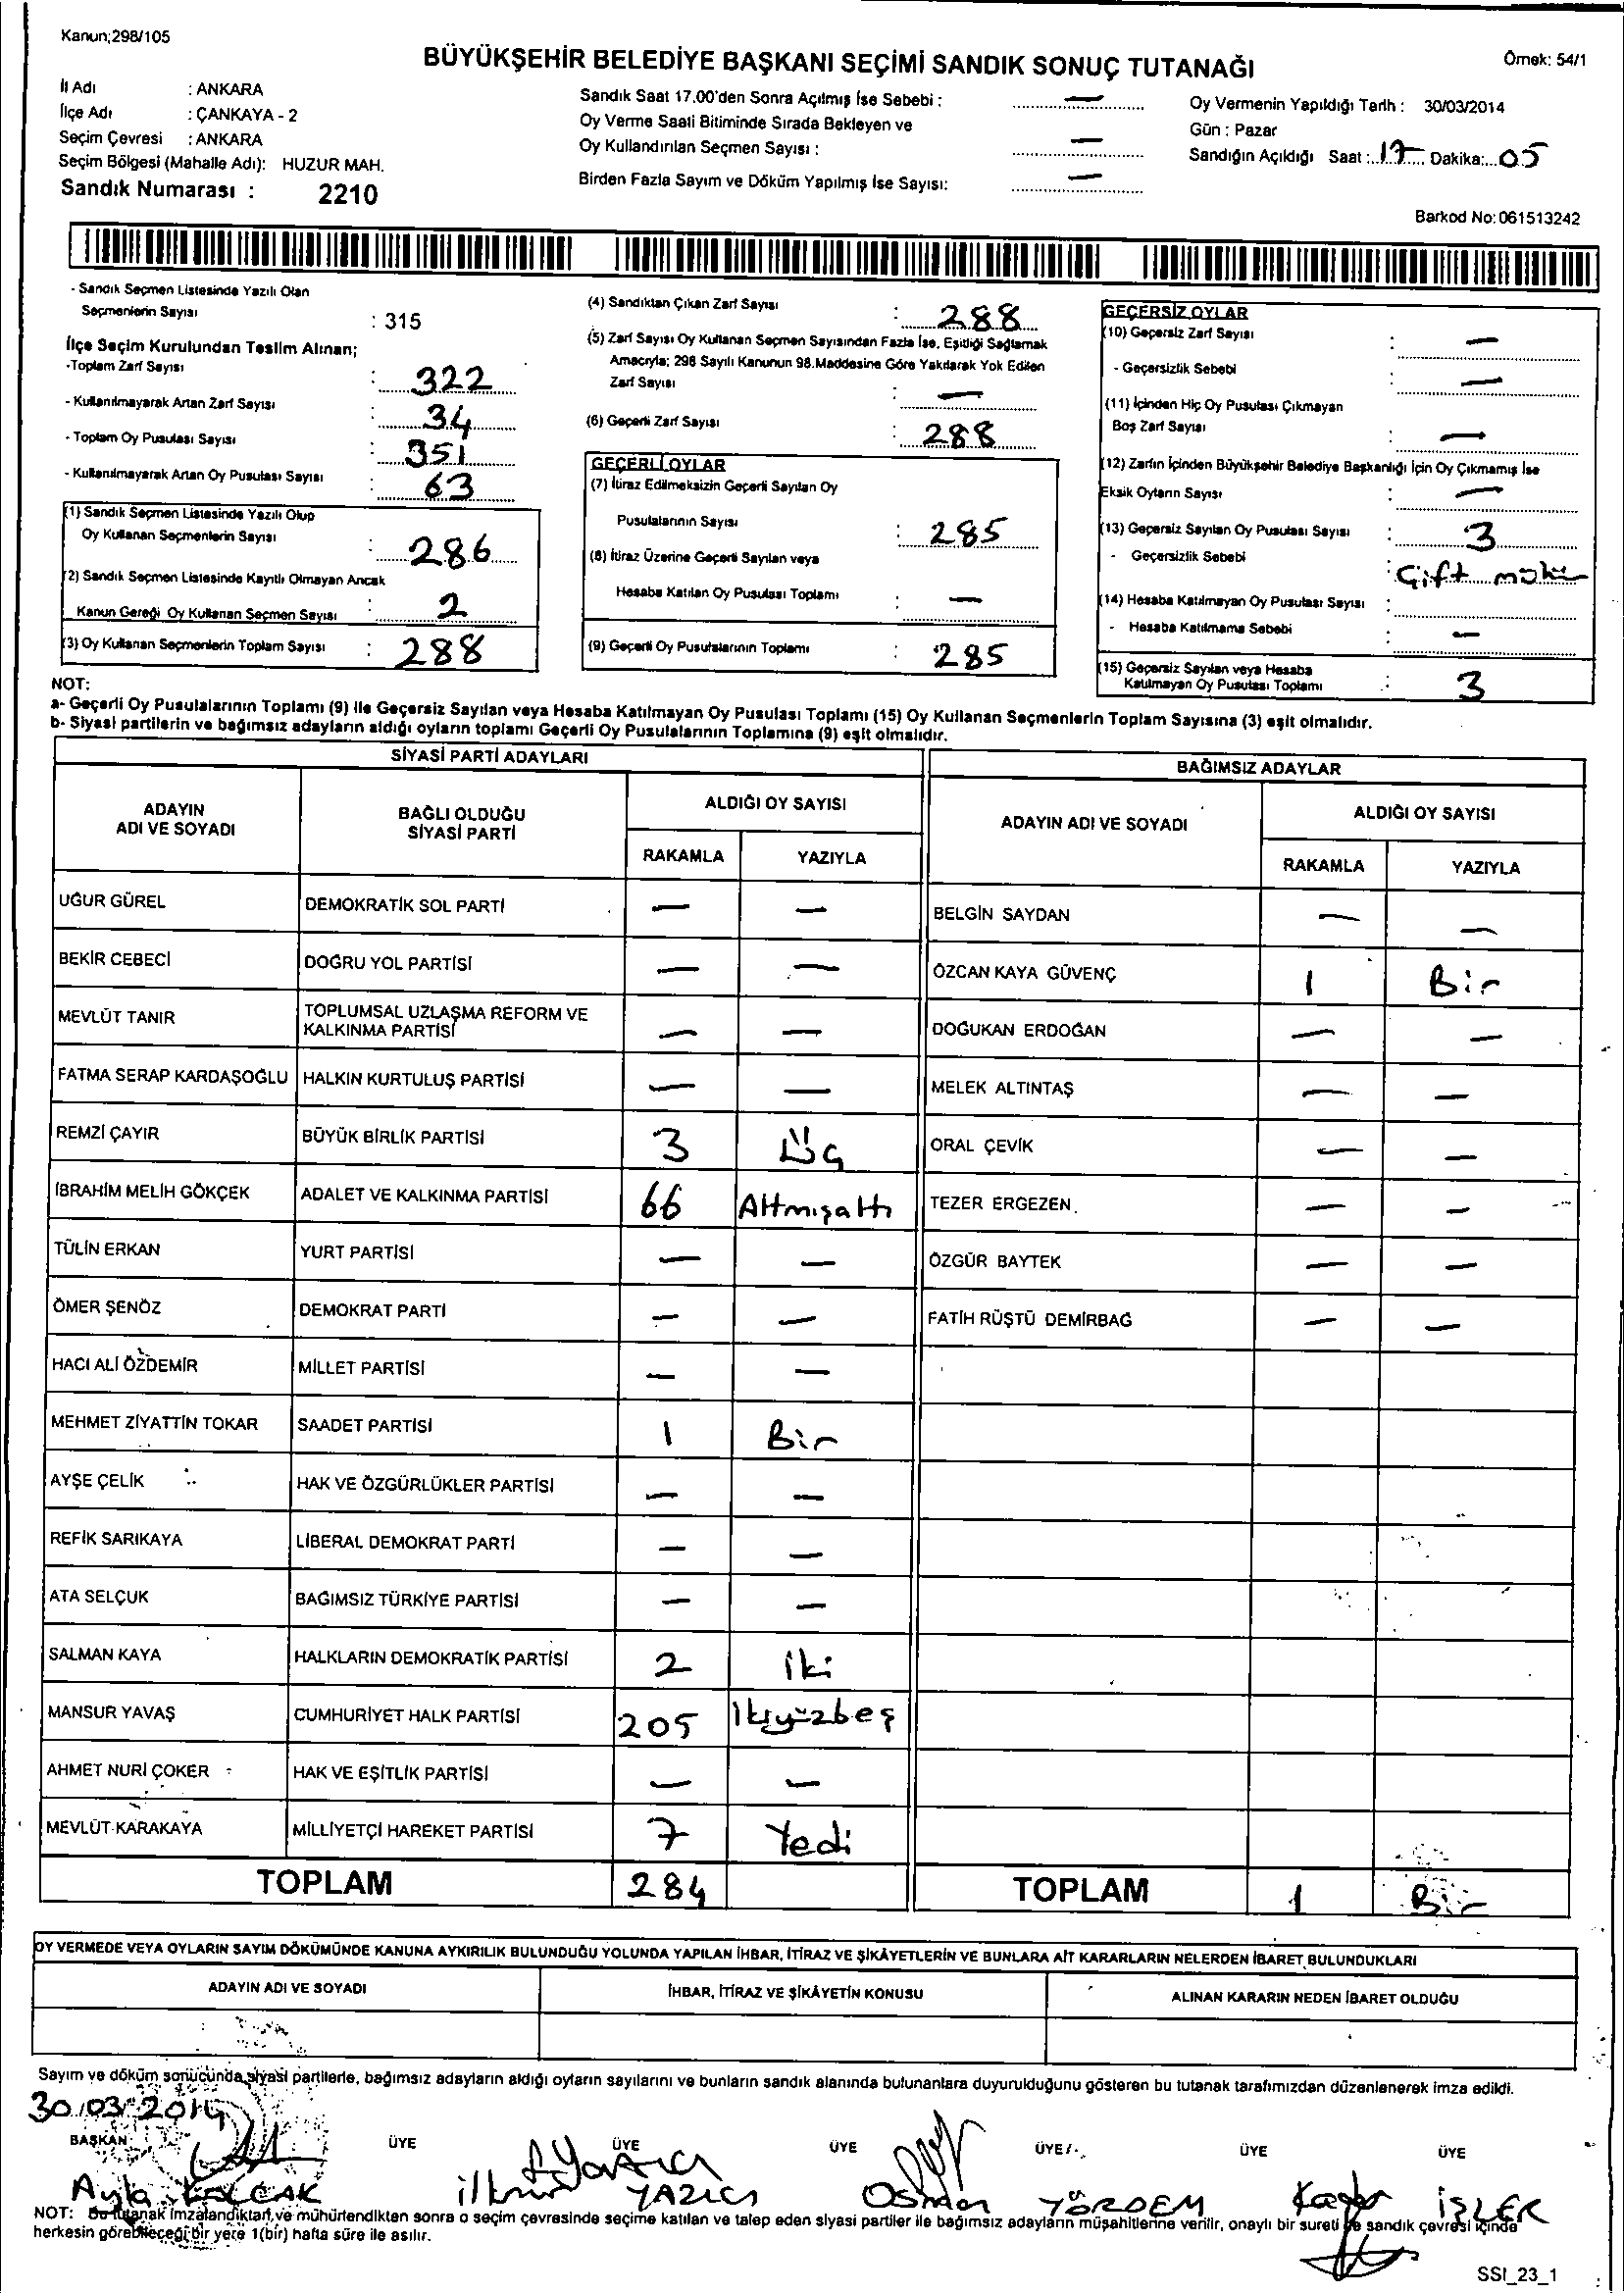 Kanun;298/105
BÜYÜKŞEHİR BELEDİYE BAŞKANI SEÇİMİ SANDIK SONUÇ TUTANAĞI
Örnek: 54/1
İl Adı : ANKARA
İlçe Adı : ÇANKAYA - 2
Seçim Çevresi : ANKARA
Seçim Bölgesi (Mahalle Adı): HUZUR MAH.
Sandık Numarası : 2210
Sandık Saat 17.00'den Sonra Açılmış İse Sebebi : —
Oy Verme Saati Bitiminde Sırada Bekleyen ve
Oy Kullandırılan Seçmen Sayısı : —
Birden Fazla Sayım ve Döküm Yapılmış İse Sayısı: —
Oy Vermenin Yapıldığı Tarih : 30/03/2014
Gün : Pazar
Sandığın Açıldığı Saat : 17 Dakika: 05
Barkod No: 061513242
- Sandık Seçmen Listesinde Yazılı Olan
Seçmenlerin Sayısı : 315
İlçe Seçim Kurulundan Teslim Alınan;
-Toplam Zarf Sayısı : 322
- Kullanılmayarak Artan Zarf Sayısı : 34
- Toplam Oy Pusulası Sayısı : 351
- Kullanılmayarak Artan Oy Pusulası Sayısı : 63
(1) Sandık Seçmen Listesinde Yazılı Olup
Oy Kullanan Seçmenlerin Sayısı : 286
(2) Sandık Seçmen Listesinde Kayıtlı Olmayan Ancak
Kanun Gereği Oy Kullanan Seçmen Sayısı : 2
(3) Oy Kullanan Seçmenlerin Toplam Sayısı : 288
(4) Sandıktan Çıkan Zarf Sayısı : 288
(5) Zarf Sayısı Oy Kullanan Seçmen Sayısından Fazla İse, Eşitliği Sağlamak
Amacıyla; 298 Sayılı Kanunun 98.Maddesine Göre Yakılarak Yok Edilen
Zarf Sayısı : —
(6) Geçerli Zarf Sayısı : 288
GEÇERLİ OYLAR
(7) İtiraz Edilmeksizin Geçerli Sayılan Oy
Pusulalarının Sayısı : 285
(8) İtiraz Üzerine Geçerli Sayılan veya
Hesaba Katılan Oy Pusulası Toplamı : —
(9) Geçerli Oy Pusulalarının Toplamı : 285
GEÇERSİZ OYLAR
(10) Geçersiz Zarf Sayısı : —
- Geçersizlik Sebebi : —
(11) İçinden Hiç Oy Pusulası Çıkmayan
Boş Zarf Sayısı : —
(12) Zarfın İçinden Büyükşehir Belediye Başkanlığı İçin Oy Çıkmamış İse
Eksik Oyların Sayısı : —
(13) Geçersiz Sayılan Oy Pusulası Sayısı : 3
- Geçersizlik Sebebi : Çift mühür
(14) Hesaba Katılmayan Oy Pusulası Sayısı :
- Hesaba Katılmama Sebebi : —
(15) Geçersiz Sayılan veya Hesaba
Katılmayan Oy Pusulası Toplamı : 3
NOT:
a- Geçerli Oy Pusulalarının Toplamı (9) ile Geçersiz Sayılan veya Hesaba Katılmayan Oy Pusulası Toplamı (15) Oy Kullanan Seçmenlerin Toplam Sayısına (3) eşit olmalıdır.
b- Siyasi partilerin ve bağımsız adayların aldığı oyların toplamı Geçerli Oy Pusulalarının Toplamına (9) eşit olmalıdır.
SİYASİ PARTİ ADAYLARI
ADAYIN ADI VE SOYADI BAĞLI OLDUĞU SİYASİ PARTİ ALDIĞI OY SAYISI
RAKAMLA YAZIYLA
UĞUR GÜREL DEMOKRATİK SOL PARTİ — —
BEKİR CEBECİ DOĞRU YOL PARTİSİ — —
MEVLÜT TANIR TOPLUMSAL UZLAŞMA REFORM VE KALKINMA PARTİSİ — —
FATMA SERAP KARDAŞOĞLU HALKIN KURTULUŞ PARTİSİ — —
REMZİ ÇAYIR BÜYÜK BİRLİK PARTİSİ 3 Üç
İBRAHİM MELİH GÖKÇEK ADALET VE KALKINMA PARTİSİ 66 Altmışaltı
TÜLİN ERKAN YURT PARTİSİ — —
ÖMER ŞENÖZ DEMOKRAT PARTİ — —
HACI ALİ ÖZDEMİR MİLLET PARTİSİ — —
MEHMET ZİYATTİN TOKAR SAADET PARTİSİ 1 Bir
AYŞE ÇELİK HAK VE ÖZGÜRLÜKLER PARTİSİ — —
REFİK SARIKAYA LİBERAL DEMOKRAT PARTİ — —
ATA SELÇUK BAĞIMSIZ TÜRKİYE PARTİSİ — —
SALMAN KAYA HALKLARIN DEMOKRATİK PARTİSİ 2 iki
MANSUR YAVAŞ CUMHURİYET HALK PARTİSİ 205 İkiyüzbeş
AHMET NURİ ÇOKER HAK VE EŞİTLİK PARTİSİ — —
MEVLÜT KARAKAYA MİLLİYETÇİ HAREKET PARTİSİ 7 Yedi
TOPLAM 284
BAĞIMSIZ ADAYLAR
ADAYIN ADI VE SOYADI ALDIĞI OY SAYISI
RAKAMLA YAZIYLA
BELGİN SAYDAN — —
ÖZCAN KAYA GÜVENÇ 1 Bir
DOĞUKAN ERDOĞAN — —
MELEK ALTINTAŞ — —
ORAL ÇEVİK — —
TEZER ERGEZEN — —
ÖZGÜR BAYTEK — —
FATİH RÜŞTÜ DEMİRBAĞ — —
TOPLAM 1 Bir
OY VERMEDE VEYA OYLARIN SAYIM DÖKÜMÜNDE KANUNA AYKIRILIK BULUNDUĞU YOLUNDA YAPILAN İHBAR, İTİRAZ VE ŞİKÂYETLERİN VE BUNLARA AİT KARARLARIN NELERDEN İBARET BULUNDUKLARI
ADAYIN ADI VE SOYADI İHBAR, İTİRAZ VE ŞİKÂYETİN KONUSU ALINAN KARARIN NEDEN İBARET OLDUĞU
Sayım ve döküm sonucunda siyasi partilerle, bağımsız adayların aldığı oyların sayılarını ve bunların sandık alanında bulunanlara duyurulduğunu gösteren bu tutanak tarafımızdan düzenlenerek imza edildi.
30/03/2014
BAŞKAN ÜYE ÜYE ÜYE ÜYE ÜYE ÜYE
Ayla KOLCAK YAZICI Osman YÖRDEM İŞLER
NOT: Bu tutanak imzalandıktan ve mühürlendikten sonra o seçim çevresinde seçime katılan ve talep eden siyasi partiler ile bağımsız adayların müşahitlerine verilir, onaylı bir sureti de sandık çevresi içinde
herkesin görebileceği bir yere 1(bir) hafta süre ile asılır.
SSI_23_1